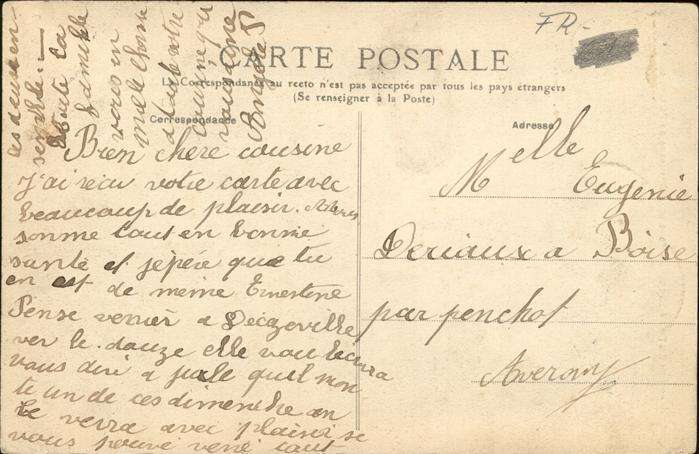 FR-
CARTE POSTALE
La Correspondance au recto n'est pas acceptée par tous les pays étrangers
(Se renseigner à la Poste)
Correspondance
Adresse
Bien chere cousine
J'ai recu votre carte avec
beaucoup de plaisir.
somme tout en bonne
santé et jepére que tu
en est de meme Ernestine
Pense venir a Decazeville
ver le douze elle vou lecrira
vous diré a quil non
te un de ces dimenche an
le verra avec plaisir se
vous pouvé vené tout
ces deux en
semble. —
toute la
famille
vores en
mille chose
votre
cousine qui
vous aime
Melle Eugenie
Deriaux a Boise
par penchot
Averon